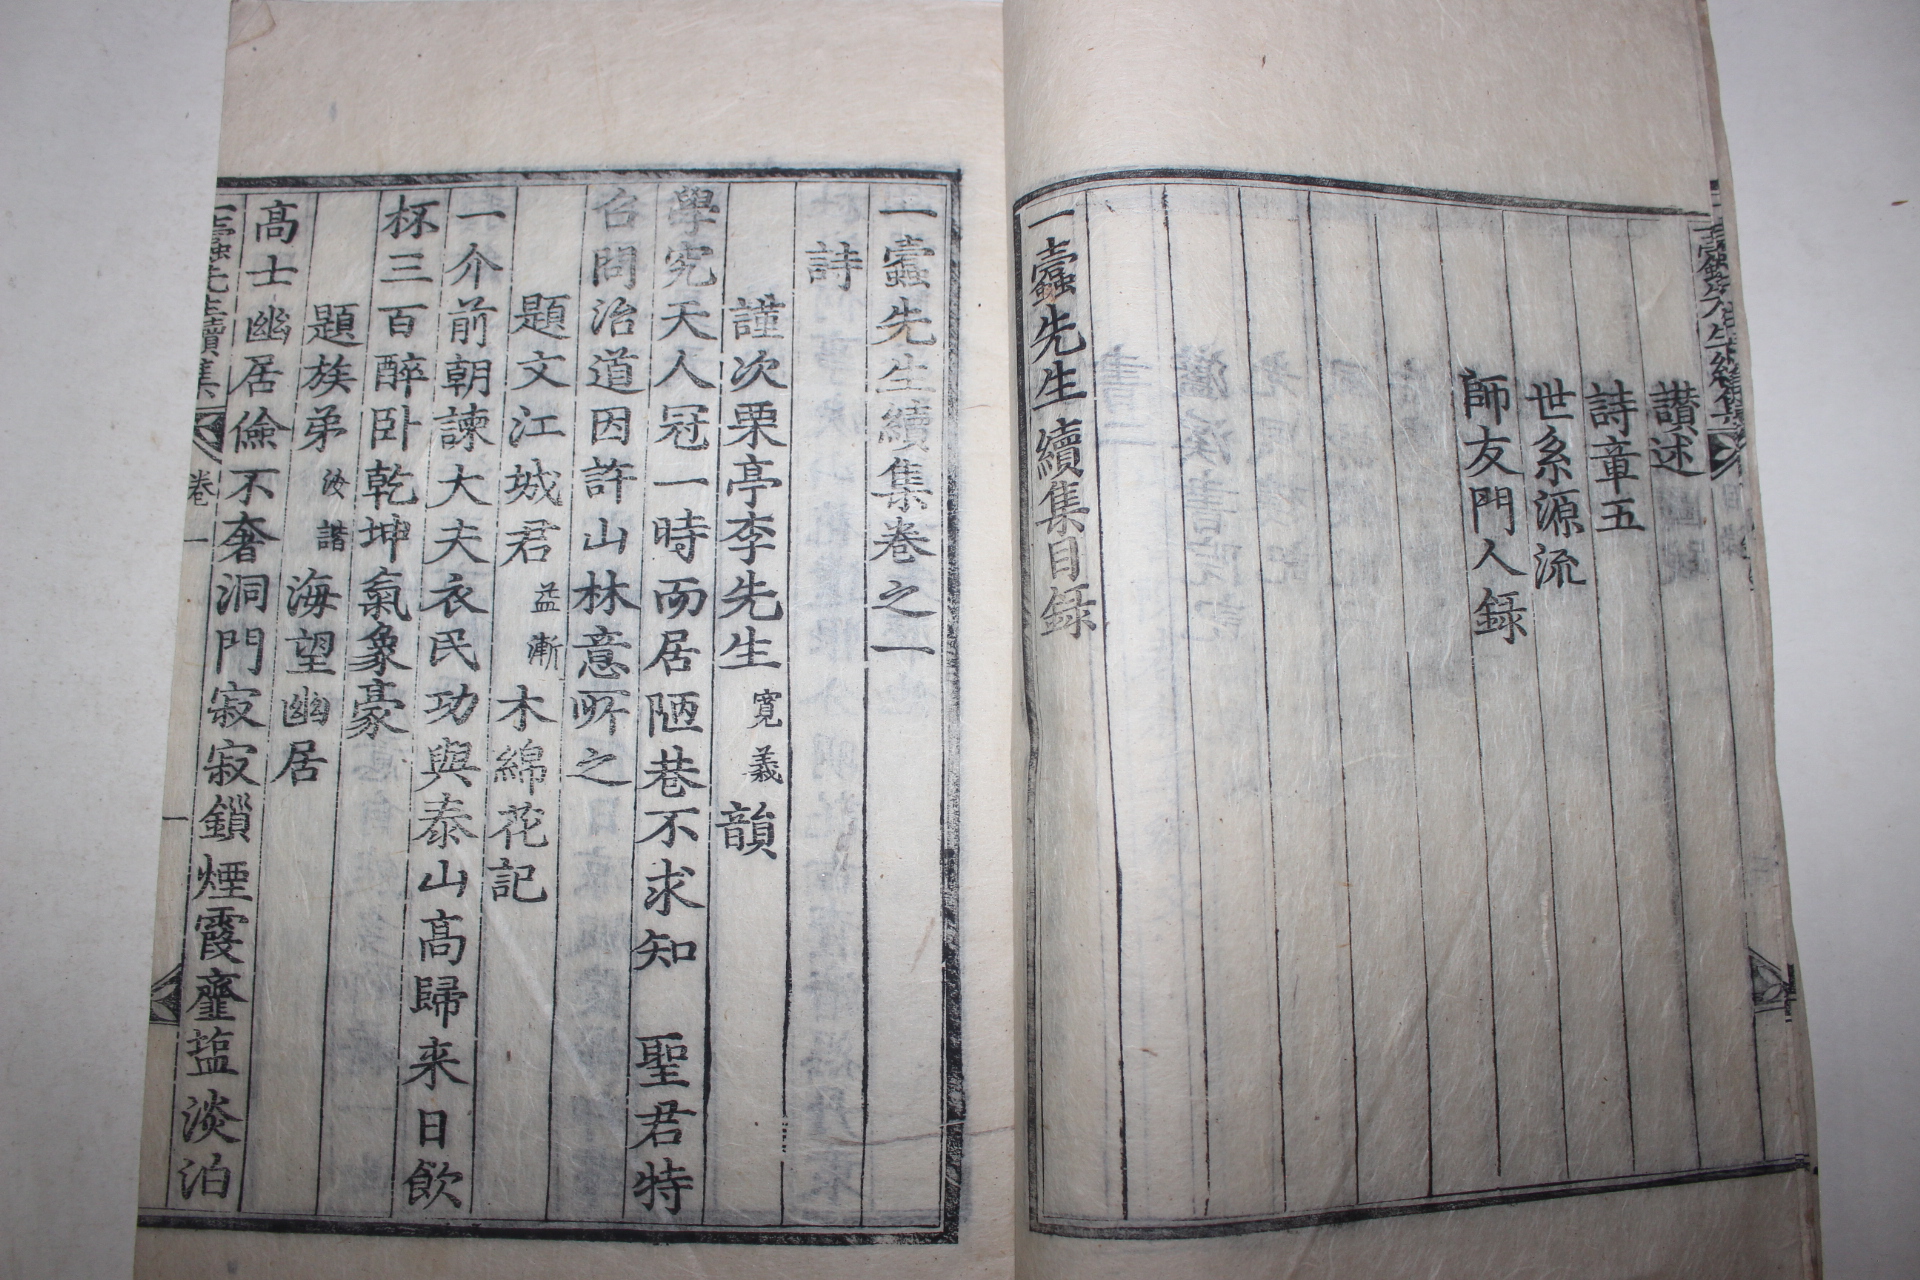 讃述
詩章五
世系源流
師友門人録
一蠹先生續集目録
一蠹先生續集卷之一
詩
謹次栗亭李先生寬義韻
學究天人冠一時而居陋巷不求知　聖君特
召問治道因許山林意所之
題文江城君益漸木綿花記
一介前朝諫大夫衣民功與泰山高歸来日飮
杯三百醉卧乾坤氣象豪
題族弟汝諧海望幽居
高士幽居儉不奢洞門寂寂鎖煙霞虀塩淡泊
一蠹先生續集　卷一　一